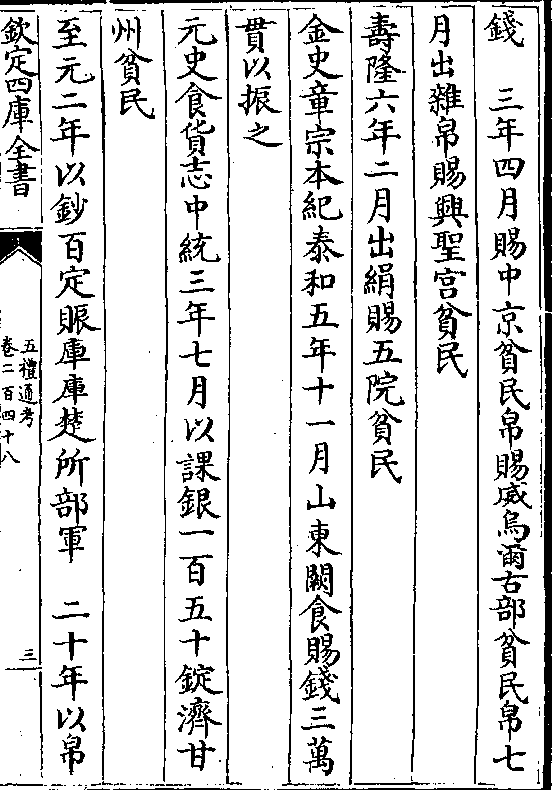 錢　三年四月賜中京貧民帛賜威烏爾古部貧民帛七
月出雜帛賜興聖宫貧民
壽隆六年二月出絹賜五院貧民
金史章宗本紀泰和五年十一月山東闕食賜錢三萬
貫以振之
元史食貨志中統三年七月以課銀一百五十錠濟甘
州貧民
至元二年以鈔百定賑庫庫楚所部軍　二十年以帛
欽定四庫全書
五禮通考
卷二百四十八
三